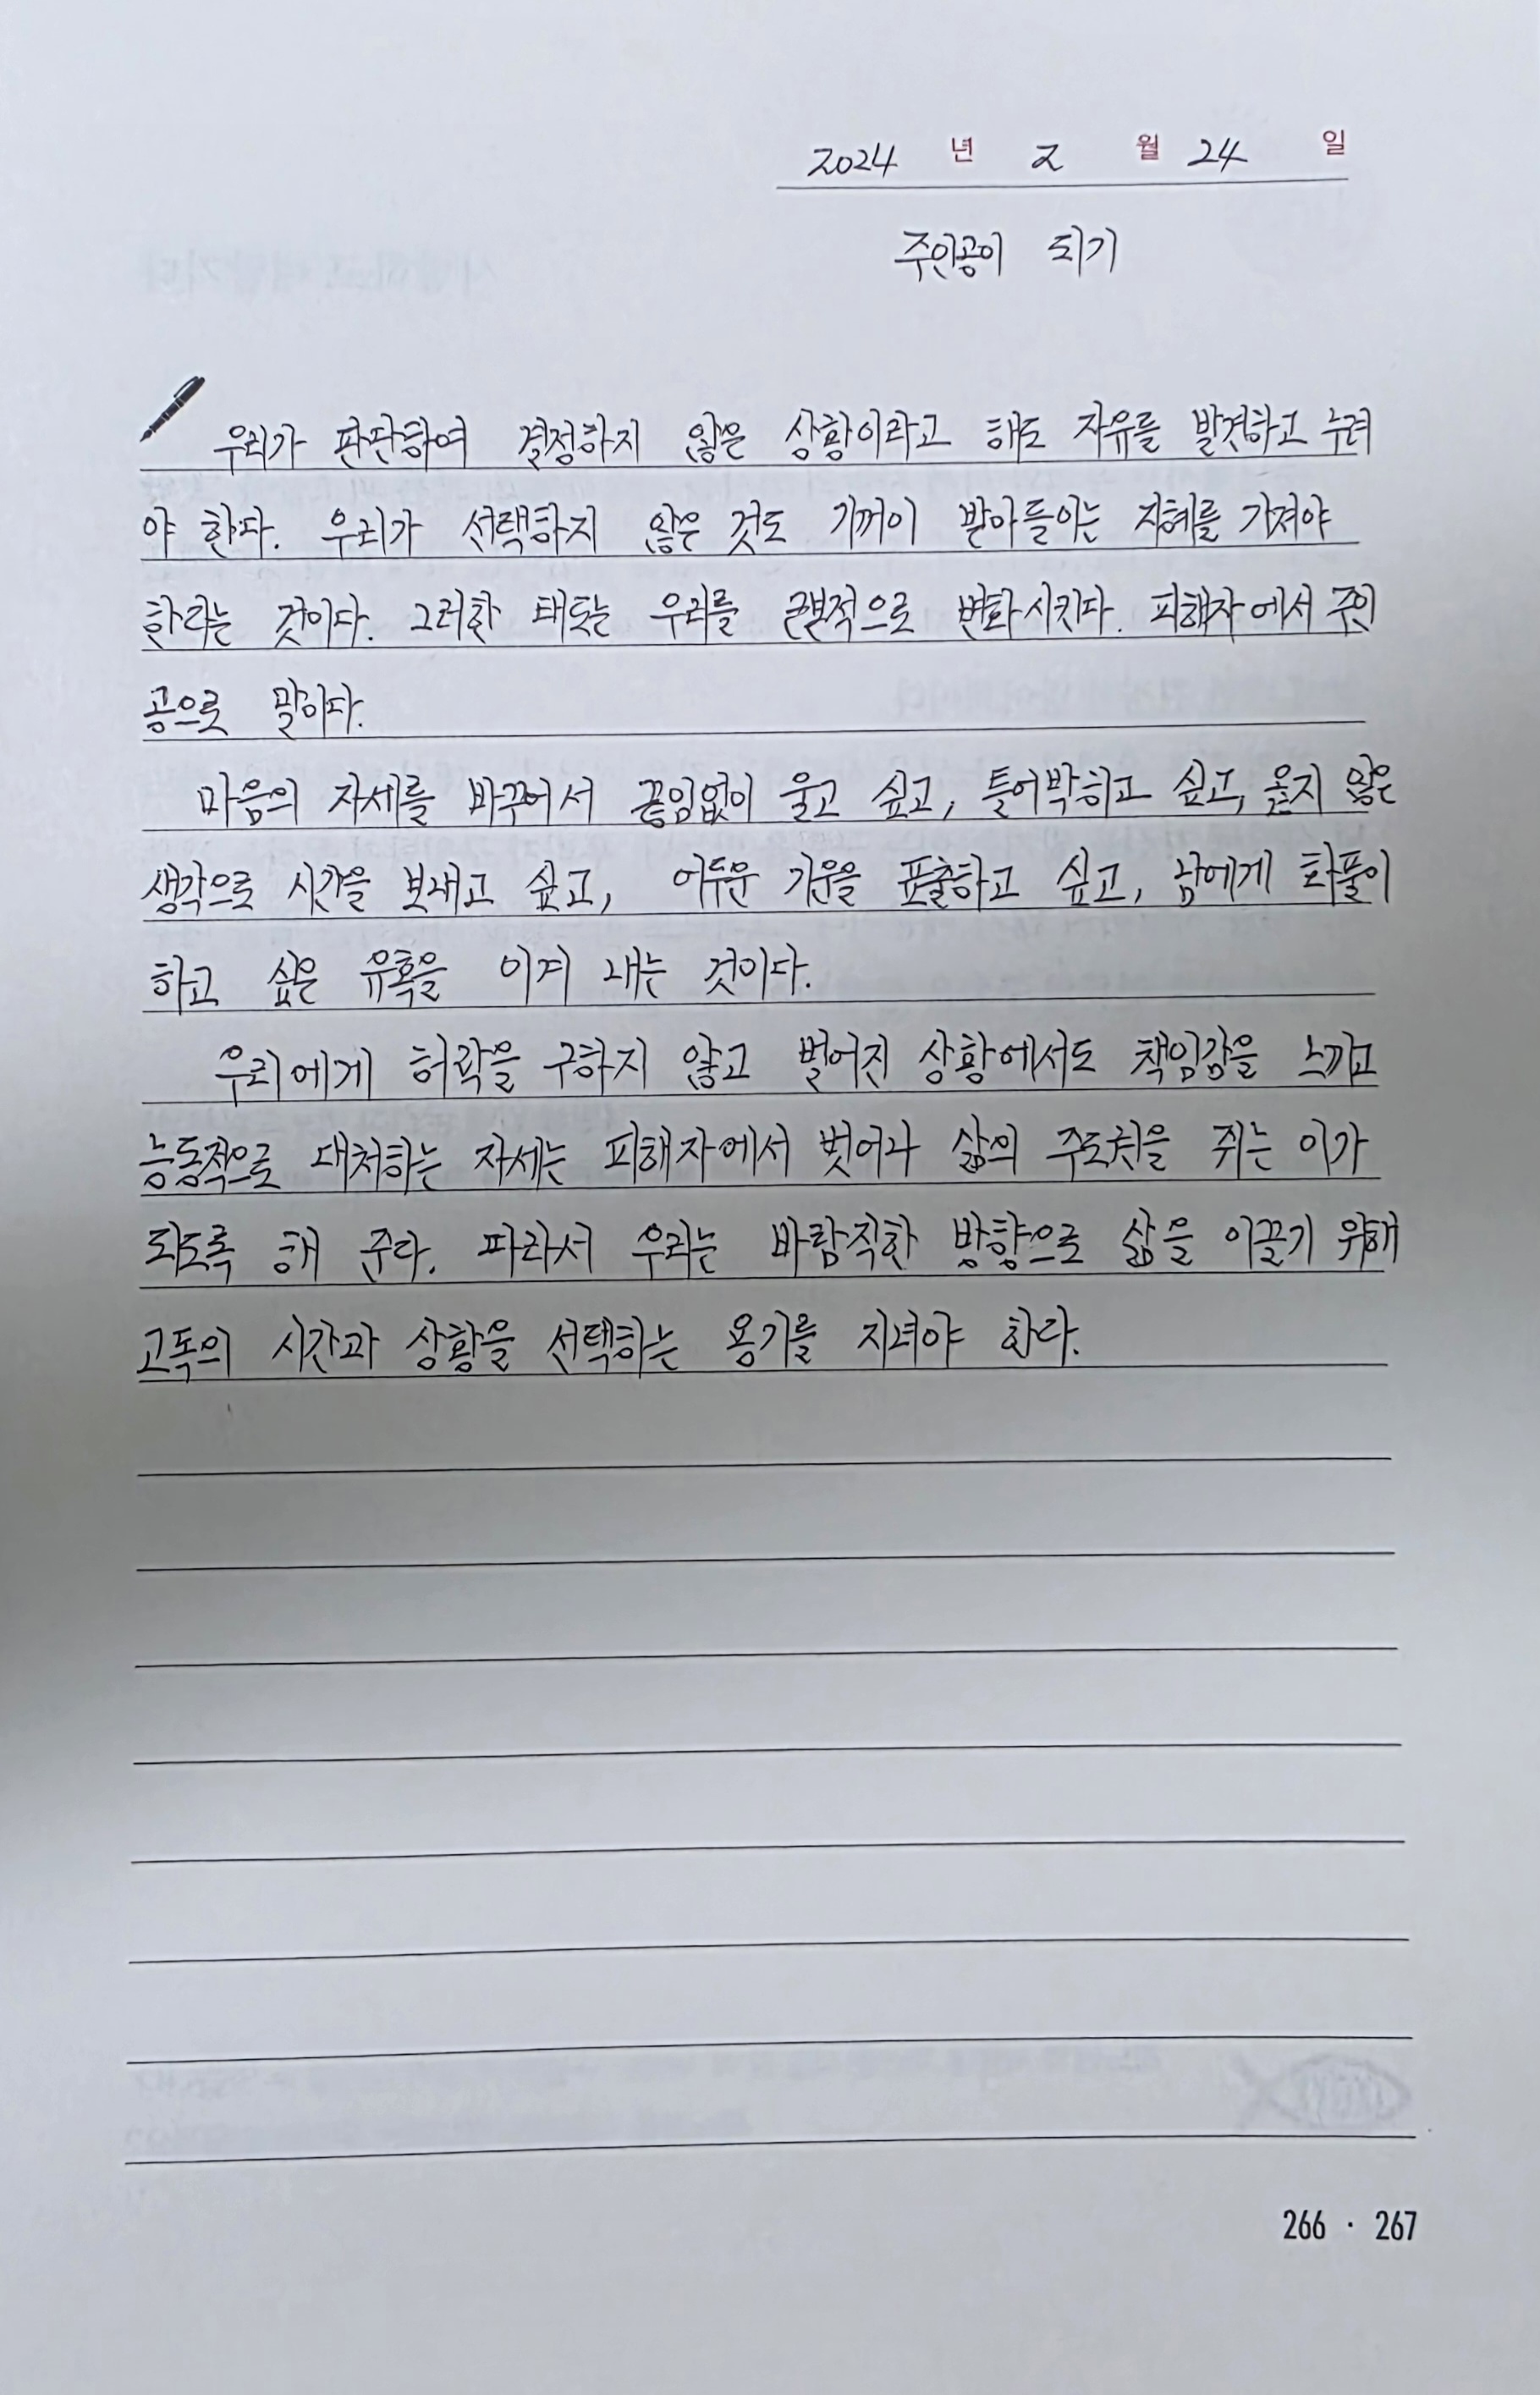 2024 년 2 월 24 일
주인공이 되기
우리가 판단하여 결정하지 않은 상황이라고 해도 자유를 발견하고 누려
야 한다. 우리가 선택하지 않은 것도 기꺼이 받아들이는 지혜를 가져야
한다는 것이다. 그러한 태도는 우리를 근본적으로 변화시킨다. 피해자에서 주인
공으로 말이다.
마음의 자세를 바꾸어서 끊임없이 울고 싶고, 틀어박히고 싶고, 옳지 않은
생각으로 시간을 보내고 싶고, 어두운 기운을 표출하고 싶고, 남에게 화풀이
하고 싶은 유혹을 이겨 내는 것이다.
우리에게 허락을 구하지 않고 벌어진 상황에서도 책임감을 느끼고
능동적으로 대처하는 자세는 피해자에서 벗어나 삶의 주도권을 쥐는 이가
되도록 해 준다. 따라서 우리는 바람직한 방향으로 삶을 이끌기 위해
고독의 시간과 상황을 선택하는 용기를 지녀야 한다.
266 · 267